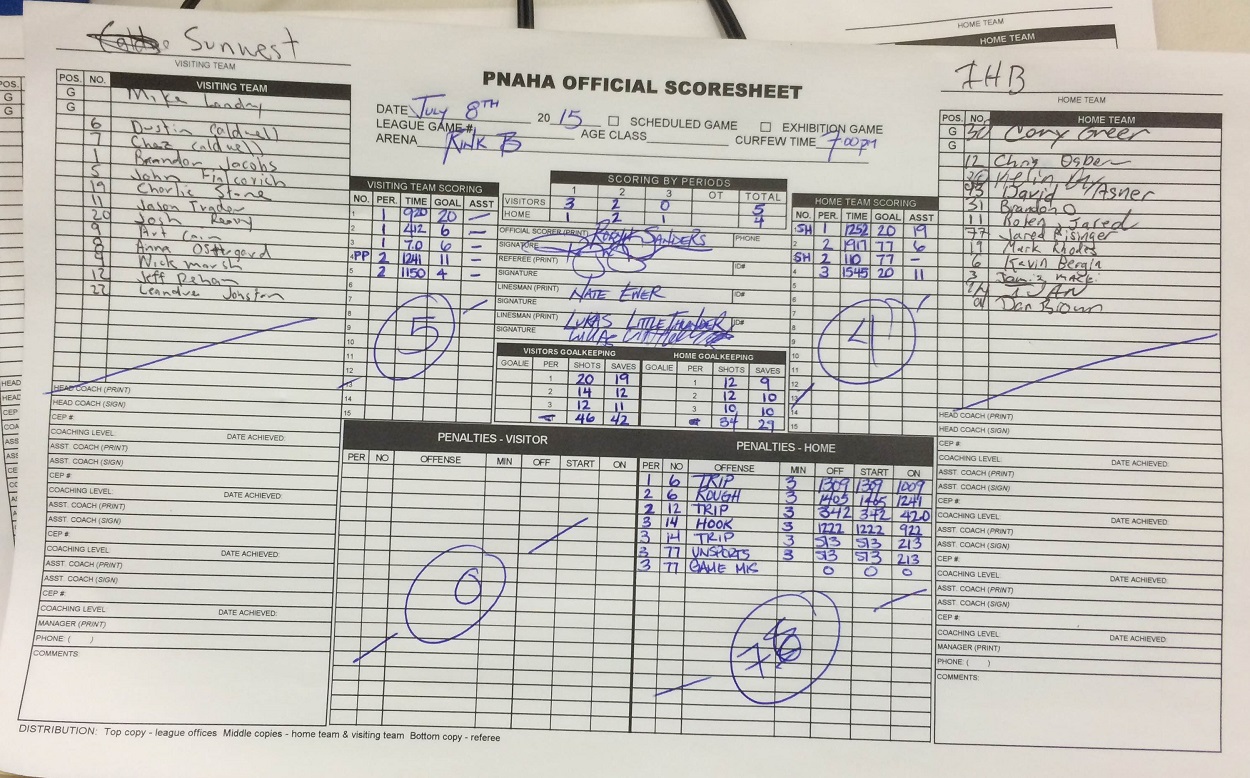 Sunwest
VISITING TEAM
PNAHA OFFICIAL SCORESHEET
HOME TEAM
HOME TEAM
IHB
HOME TEAM
DATE July 8TH 2015 ☐ SCHEDULED GAME ☐ EXHIBITION GAME
LEAGUE GAME# AGE CLASS CURFEW TIME 7:00pm
ARENA Rink B
POS. NO. VISITING TEAM
G Mike Landry
G
6 Dustin Caldwell
7 Chaz Caldwell
1 Brandon Jacobs
5 John
19 Charlie Stone
11 Jason
20 Josh
9 Art Cain
8 Anna
9 Nick Marsh
12 Jeff
22 Leandre Johnston
HEAD COACH (PRINT)
HEAD COACH (SIGN)
CEP #:
COACHING LEVEL: DATE ACHIEVED:
ASST. COACH (PRINT)
ASST. COACH (SIGN)
CEP #:
COACHING LEVEL: DATE ACHIEVED:
ASST. COACH (PRINT)
ASST. COACH (SIGN)
CEP #:
COACHING LEVEL: DATE ACHIEVED:
ASST. COACH (PRINT)
ASST. COACH (SIGN)
CEP #:
COACHING LEVEL DATE ACHIEVED:
MANAGER (PRINT)
PHONE: ( )
COMMENTS:
VISITING TEAM SCORING
NO. PER. TIME GOAL ASST
1 1 920 20 –
2 1 412 6 –
3 1 7.0 6 –
4 PP 2 1241 11 –
5 2 1150 4 –
6
7
8
9
10
11
12
13
14
15
5
SCORING BY PERIODS
1 2 3 OT TOTAL
VISITORS 3 2 0 5
HOME 1 2 1 4
OFFICIAL SCORER (PRINT) SANDERS PHONE
SIGNATURE
REFEREE (PRINT) ID#
SIGNATURE
LINESMAN (PRINT) NATE EWER ID#
SIGNATURE
LINESMAN (PRINT) LUKAS LITTLETHUNDER ID#
SIGNATURE
VISITORS GOALKEEPING HOME GOALKEEPING
GOALIE PER SHOTS SAVES GOALIE PER SHOTS SAVES
1 20 19 1 12 9
2 14 12 2 12 10
3 12 11 3 10 10
46 42 34 29
HOME TEAM SCORING
NO. PER. TIME GOAL ASST
SH 1 1252 20 19
2 2 1917 77 6
SH 2 110 77 –
4 3 1545 20 11
5
6
7
8
9
10
11
12
13
14
15
4
POS. NO. HOME TEAM
G 30 Cory Greer
G
12 Chris Ogben
95 David Wasner
31 Brandon O
11 Boten Jared
77 Jared Risinger
19 Mark Rhodes
6 Kevin Bergin
3
Dan Brown
HEAD COACH (PRINT)
HEAD COACH (SIGN)
CEP #:
COACHING LEVEL: DATE ACHIEVED:
ASST. COACH (PRINT)
ASST. COACH (SIGN)
CEP #:
COACHING LEVEL: DATE ACHIEVED:
ASST. COACH (PRINT)
ASST. COACH (SIGN)
CEP #:
COACHING LEVEL DATE ACHIEVED:
ASST. COACH (PRINT)
ASST. COACH (SIGN)
CEP #:
COACHING LEVEL DATE ACHIEVED:
MANAGER (PRINT)
PHONE: ( )
COMMENTS:
PENALTIES - VISITOR
PER NO OFFENSE MIN OFF START ON
0
PENALTIES - HOME
PER NO OFFENSE MIN OFF START ON
1 6 TRIP 3 1309 1309 1009
2 6 ROUGH 3 1405 1405 1241
2 12 TRIP 3 342 342 420
3 14 HOOK 3 1222 1222 922
3 14 TRIP 3 513 513 213
3 77 UNSPORTS 3 513 513 213
3 77 GAME MIS 0 0 0
DISTRIBUTION: Top copy - league offices Middle copies - home team & visiting team Bottom copy - referee